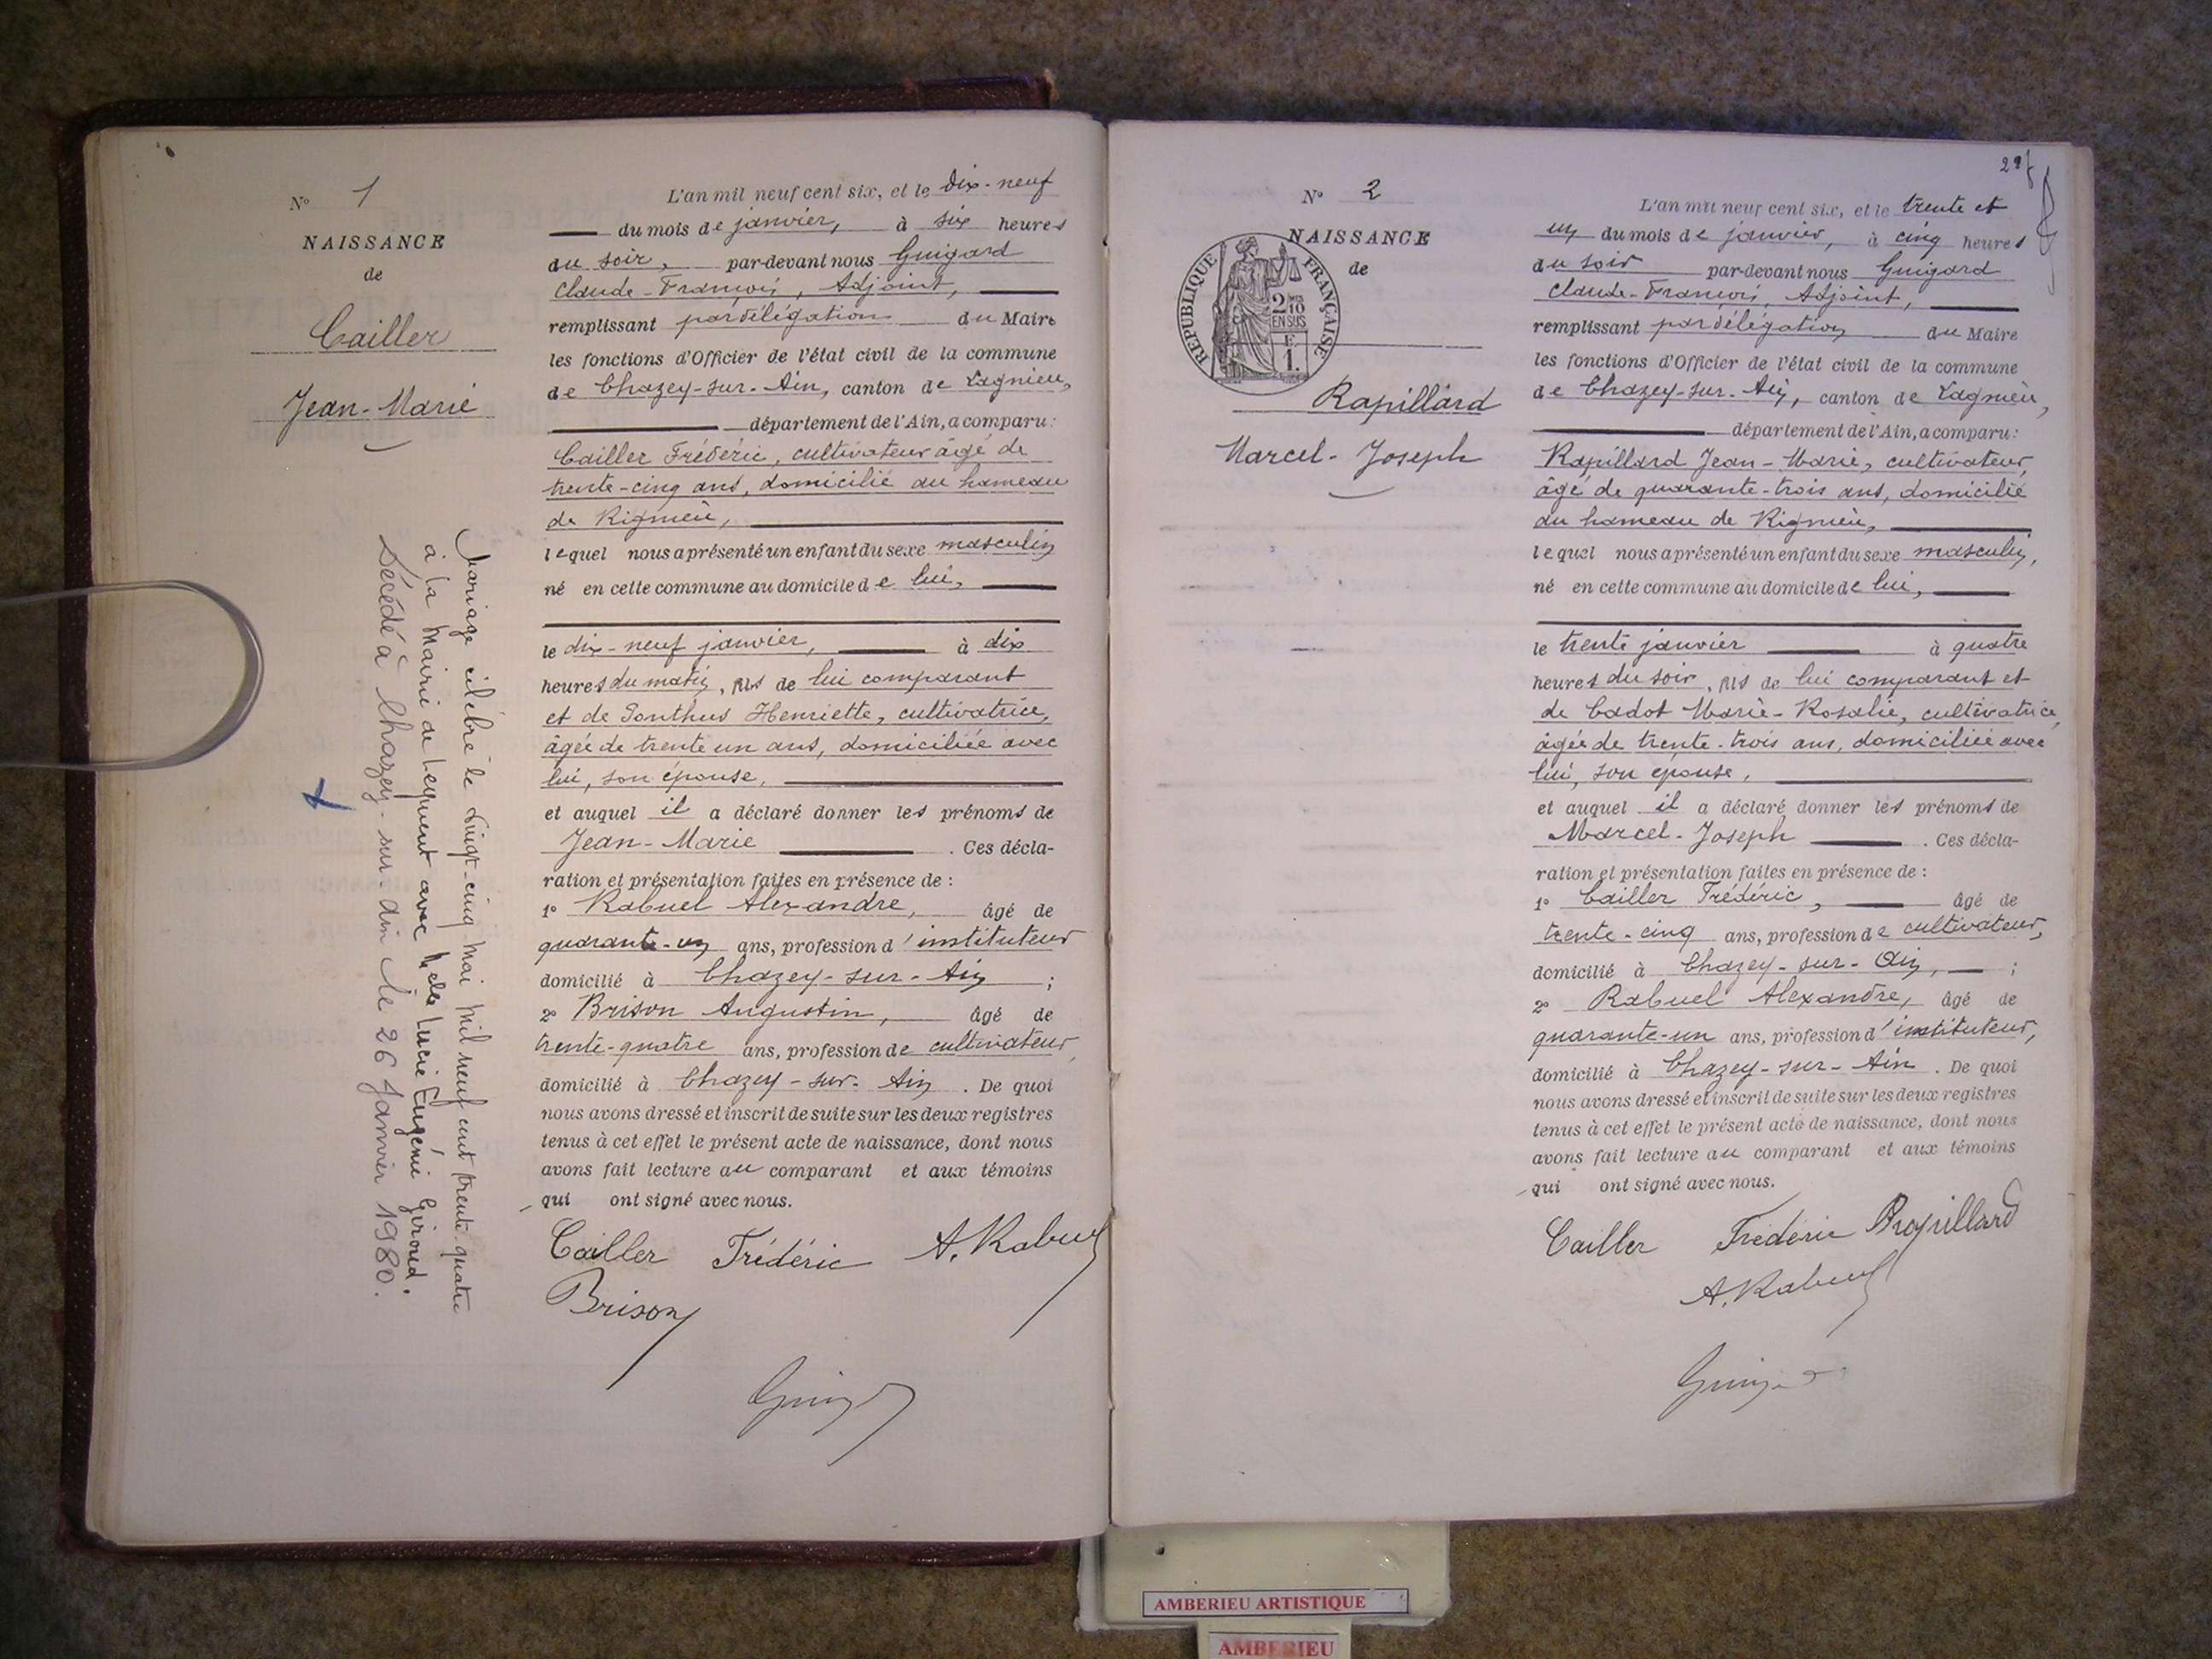 N° 1
NAISSANCE
de
Cailler
Jean-Marie
Mariage célébré le vingt-cinq mai mil neuf cent trente-quatre
à la Mairie de Leyment avec Lucie Eugénie Giroud.
Décédé à Chazey-sur-Ain le 26 Janvier 1980.
L'an mil neuf cent six, et le dix-neuf
du mois de janvier, à six heures
du soir, par-devant nous Guigard
Claude-François, Adjoint,
remplissant par délégation du Maire
les fonctions d'Officier de l'état civil de la commune
de Chazey-sur-Ain, canton de Lagnieu,
département de l'Ain, a comparu:
Cailler Frédéric, cultivateur âgé de
trente-cinq ans, domicilié au hameau
de Rignieu,
lequel nous a présenté un enfant du sexe masculin
né en cette commune au domicile de lui,
le dix-neuf janvier, à dix
heures du matin, fils de lui comparant
et de Ponthus Henriette, cultivatrice,
âgée de trente un ans, domiciliée avec
lui, son épouse,
et auquel il a déclaré donner les prénoms de
Jean-Marie . Ces décla-
ration et présentation faites en présence de :
1° Rabuel Alexandre, âgé de
quarante-un ans, profession d'instituteur
domicilié à Chazey-sur-Ain ;
2° Brison Augustin, âgé de
trente-quatre ans, profession de cultivateur,
domicilié à Chazey-sur-Ain . De quoi
nous avons dressé et inscrit de suite sur les deux registres
tenus à cet effet le présent acte de naissance, dont nous
avons fait lecture au comparant et aux témoins
qui ont signé avec nous.
Cailler Frédéric A. Rabuel
Brison
N° 2
NAISSANCE
de
RÉPUBLIQUE FRANÇAISE
2 10
EN SUS
F.
1.
Rapillard
Marcel-Joseph
L'an mil neuf cent six, et le trente et
un du mois de janvier, à cinq heures
du soir par-devant nous Guigard
Claude-François, Adjoint,
remplissant par délégation du Maire
les fonctions d'Officier de l'état civil de la commune
de Chazey-sur-Ain, canton de Lagnieu,
département de l'Ain, a comparu:
Rapillard Jean-Marie, cultivateur,
âgé de quarante-trois ans, domicilié
au hameau de Rignieu,
lequel nous a présenté un enfant du sexe masculin,
né en cette commune au domicile de lui,
le trente janvier à quatre
heures du soir, fils de lui comparant et
de Cadot Marie-Rosalie, cultivatrice,
âgée de trente-trois ans, domiciliée avec
lui, son épouse,
et auquel il a déclaré donner les prénoms de
Marcel-Joseph . Ces décla-
ration et présentation faites en présence de :
1° Cailler Frédéric, âgé de
trente-cinq ans, profession de cultivateur,
domicilié à Chazey-sur-Ain, ;
2° Rabuel Alexandre, âgé de
quarante-un ans, profession d'instituteur,
domicilié à Chazey-sur-Ain . De quoi
nous avons dressé et inscrit de suite sur les deux registres
tenus à cet effet le présent acte de naissance, dont nous
avons fait lecture au comparant et aux témoins
qui ont signé avec nous.
Cailler Frédéric Rapillard
A. Rabuel
AMBERIEU ARTISTIQUE
AMBERIEU